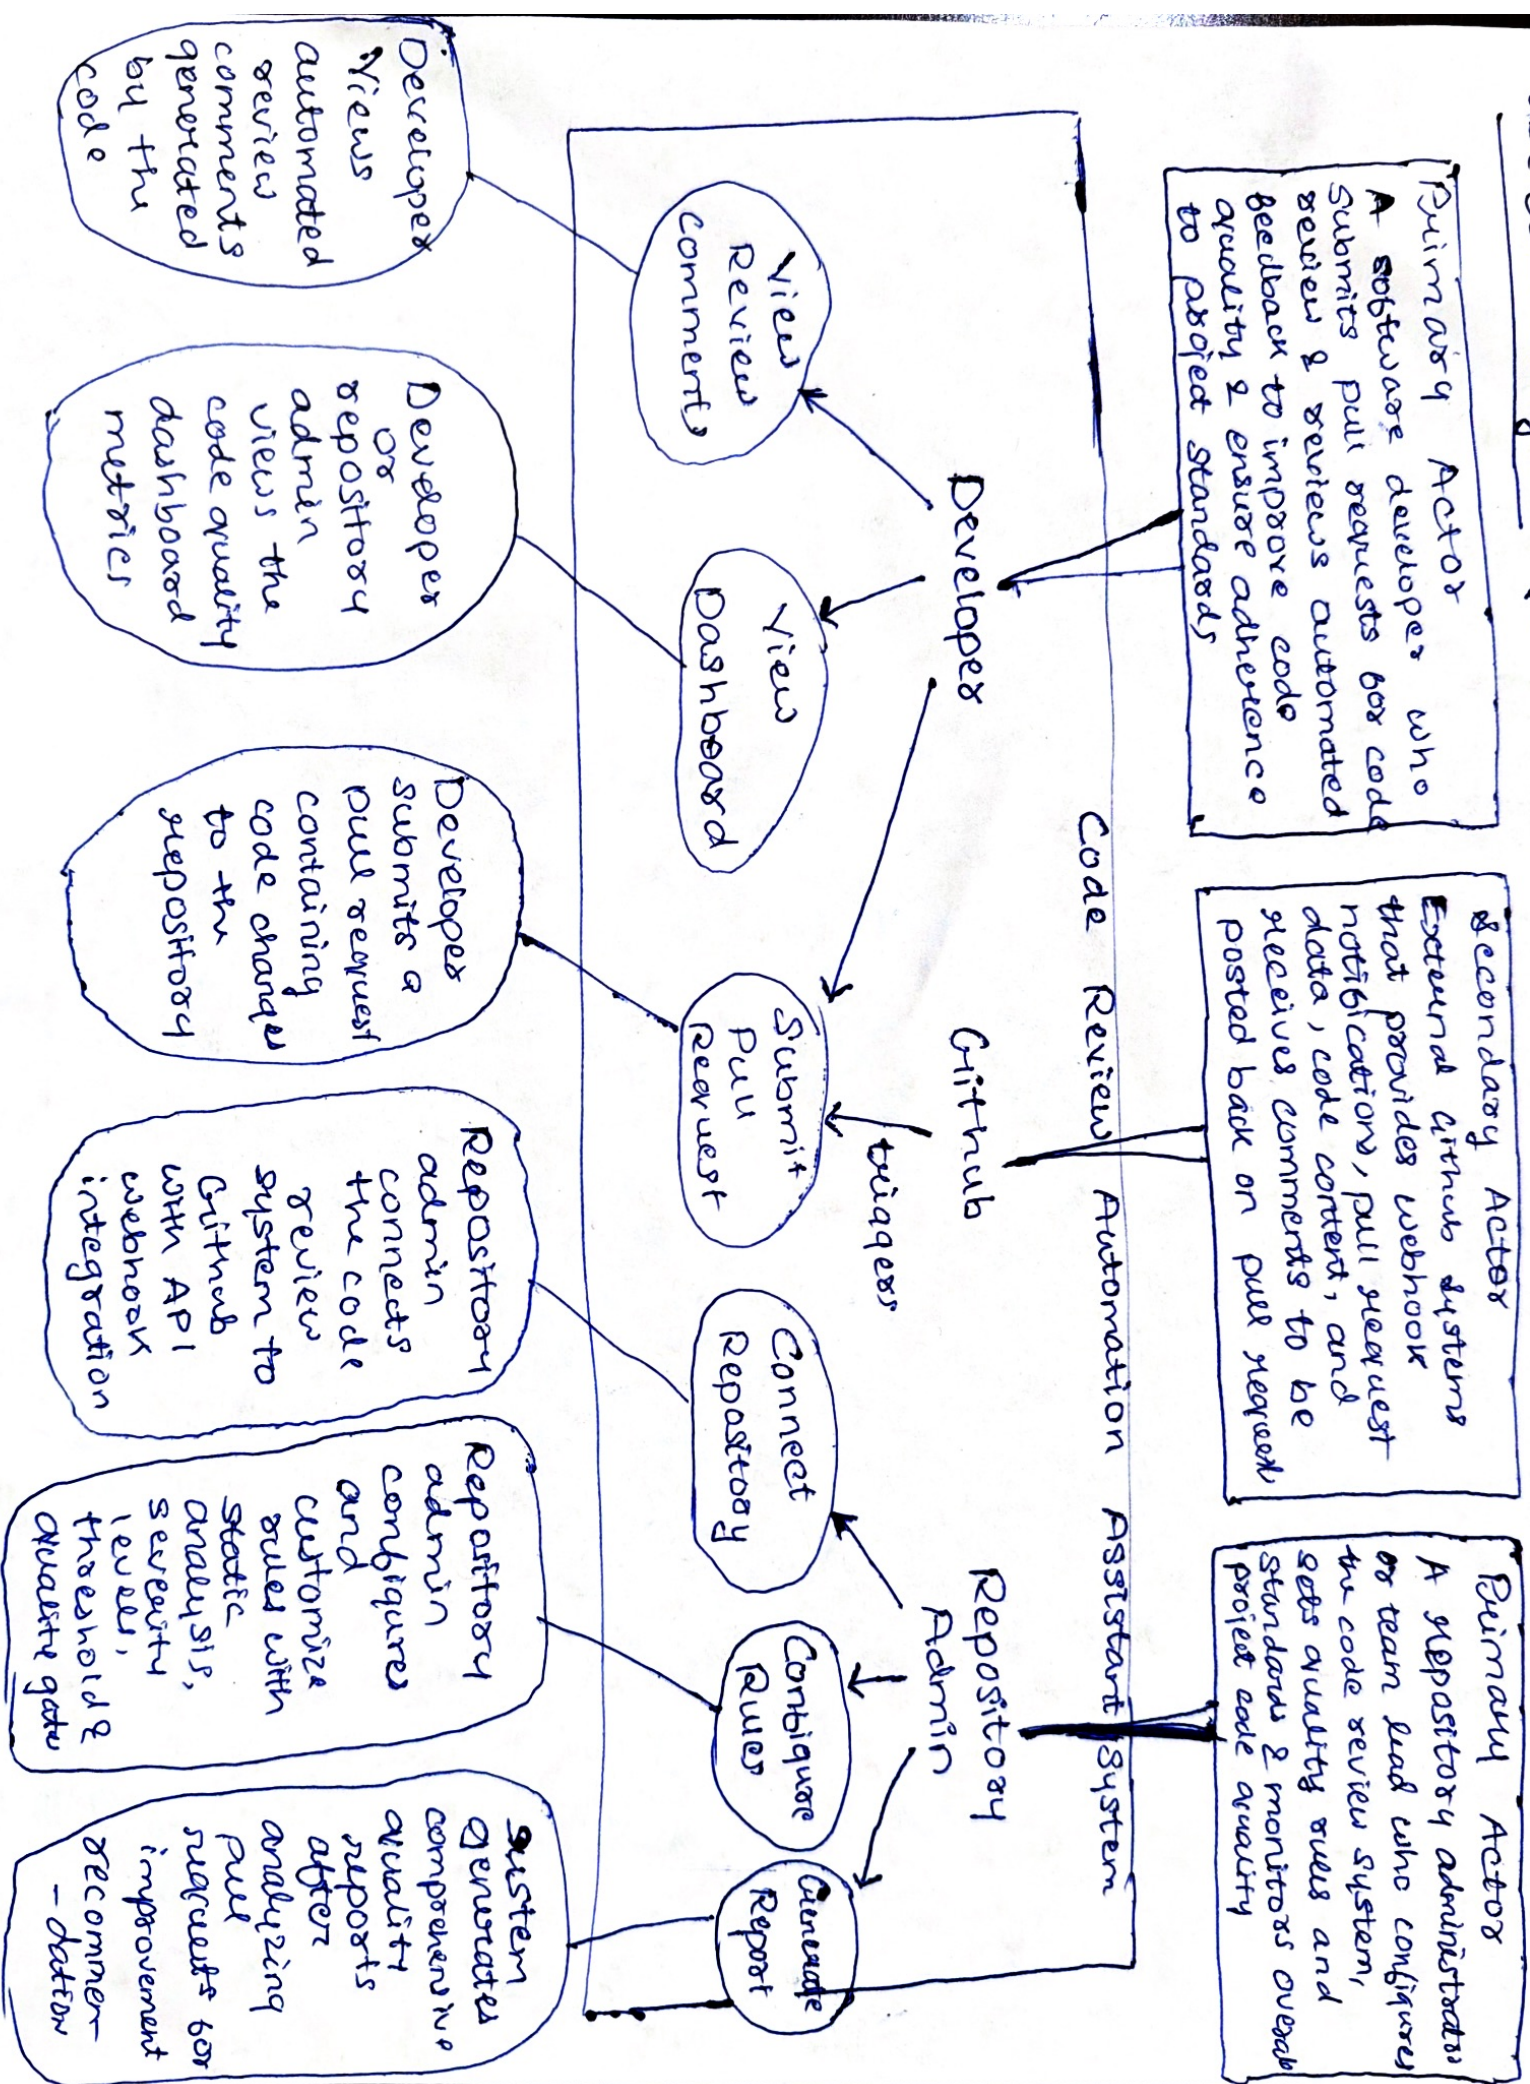 Primary Actor
A software developer who
submits pull requests for code
review & reviews automated
feedback to improve code
quality & ensure adherence
to project standards
Secondary Actor
External Github systems
that provides webhook
notifications, pull request
data, code content, and
receives comments to be
posted back on pull request
Primary Actor
A repository administrator
or team lead who configures
the code review system,
sets quality rules and
standards & monitors overall
project code quality
Code Review Automation Assistant System
Developer
Github
Repository
Admin
triggers
View
Review
Comments
View
Dashboard
Submit
Pull
Request
Connect
Repository
Configure
Rules
Generate
Report
Developer
Views
automated
review
comments
generated
by the
code
Developer
or
repository
admin
views the
code quality
dashboard
metrics
Developer
submits a
pull request
containing
code changes
to the
repository
Repository
admin
connects
the code
review
system to
Github
with API
webhook
integration
Repository
admin
configures
and
customize
rules with
static
analysis,
severity
levels,
threshold &
quality gate
System
generates
comprehensive
quality
reports
after
analyzing
pull
requests for
improvement
recommen
- dation